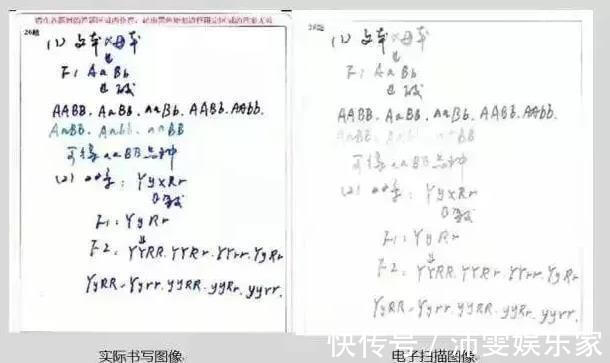 26题
(1) 父本×母本
↓
F1 AaBb
↓
AABB. AaBB. aaBb. AABb. AAbb.
AaBB. Aabb. aaBB
可得aaBB品种
(2)
: YyxRr
↓
F1: YyRr
↓
F2: YYRR. YYRr. YYrr. YyRr
YyRR. Yyrr. yyRR. yyRr. yyrr.
实际书写图像
26题
(1) 父本×母本
↓
F1 AaBb
↓
AABB. AaBB. aaBb. AABb. AAbb.
AaBB. Aabb. aaBB
可得aaBB品种
(2)
: YyxRr
↓
F1: YyRr
↓
F2: YYRR. YYRr. YYrr. YyRr
YyRR. Yyrr. yyRR. yyRr. yyrr.
电子扫描图像
快传号/沛雯娱乐家